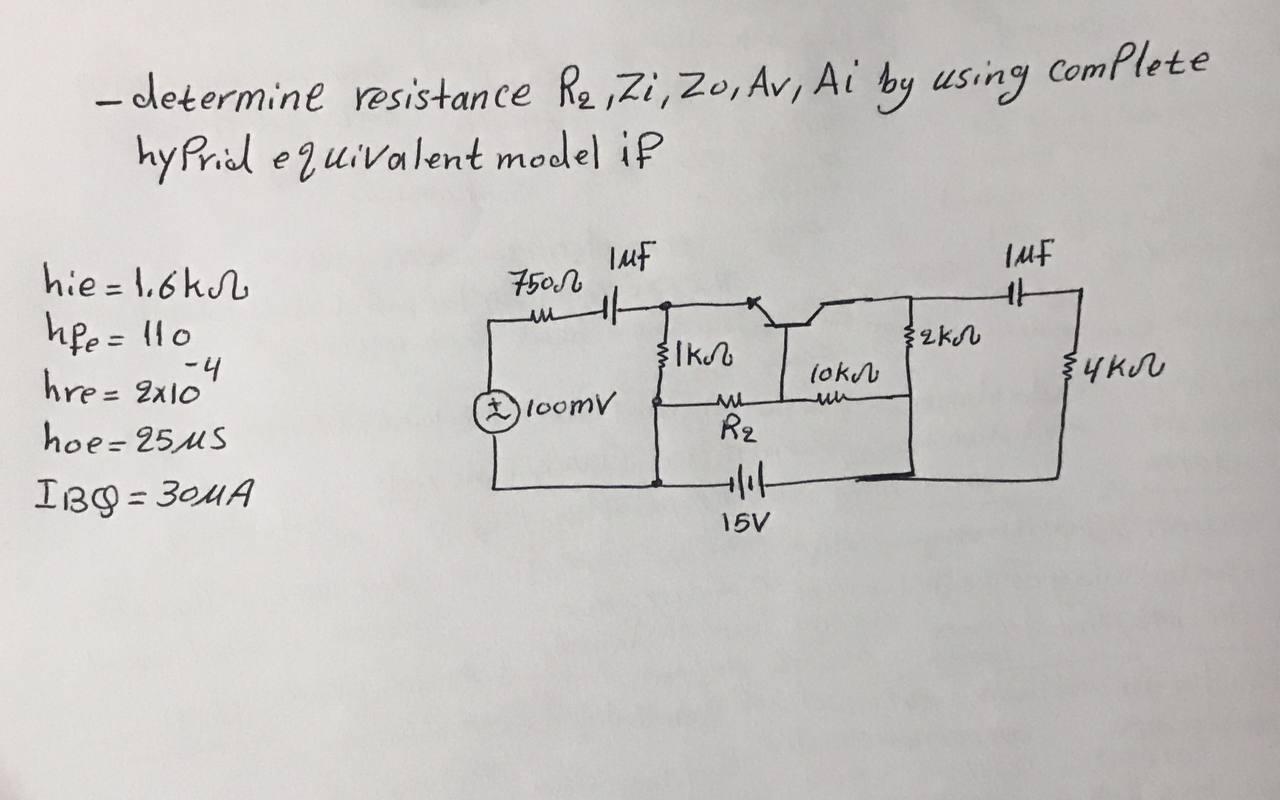 - determine resistance R2, Zi, Zo, Av, Ai by using complete
hyprid equivalent model if
hie = 1.6kΩ
hfe = 110
hre = 2x10^-4
hoe = 25μS
IBQ = 30μA
750Ω
1μF
1μF
1kΩ
2kΩ
10kΩ
4kΩ
±
~
100mV
R2
15V